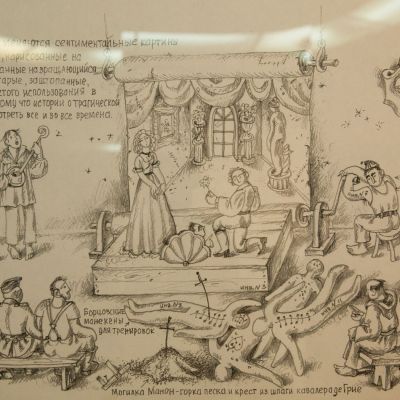 меняются сентиментальные картины
нарисованные на
ачные на вращающийся
старые, заштопанные,
стого использования в
ому что истории о трагической
отреть все и во все времена.
инв.N3
инв.N2
инв.N11
Борцовские
манекены
для тренировок
Могилка Манон-горка песка и крест из шпаги кавалера де Грие